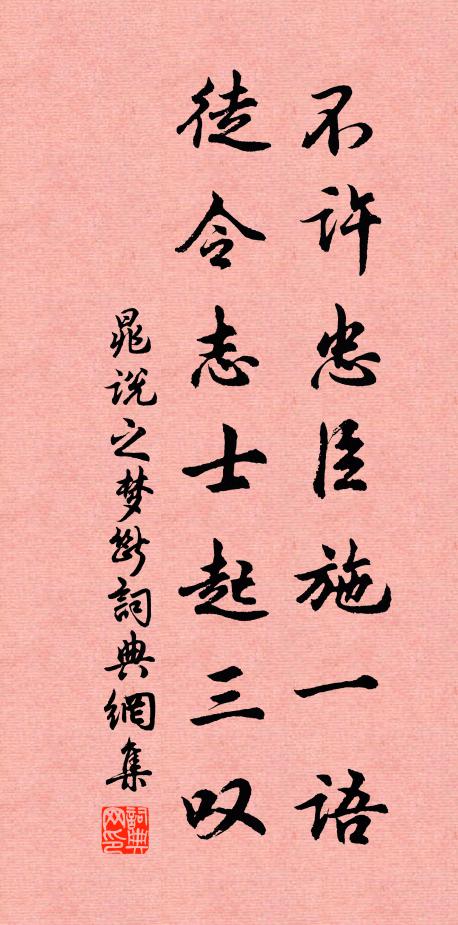 不许忠臣施一语
徒令志士起三叹
晁说之梦断詞典網集
詞典网印